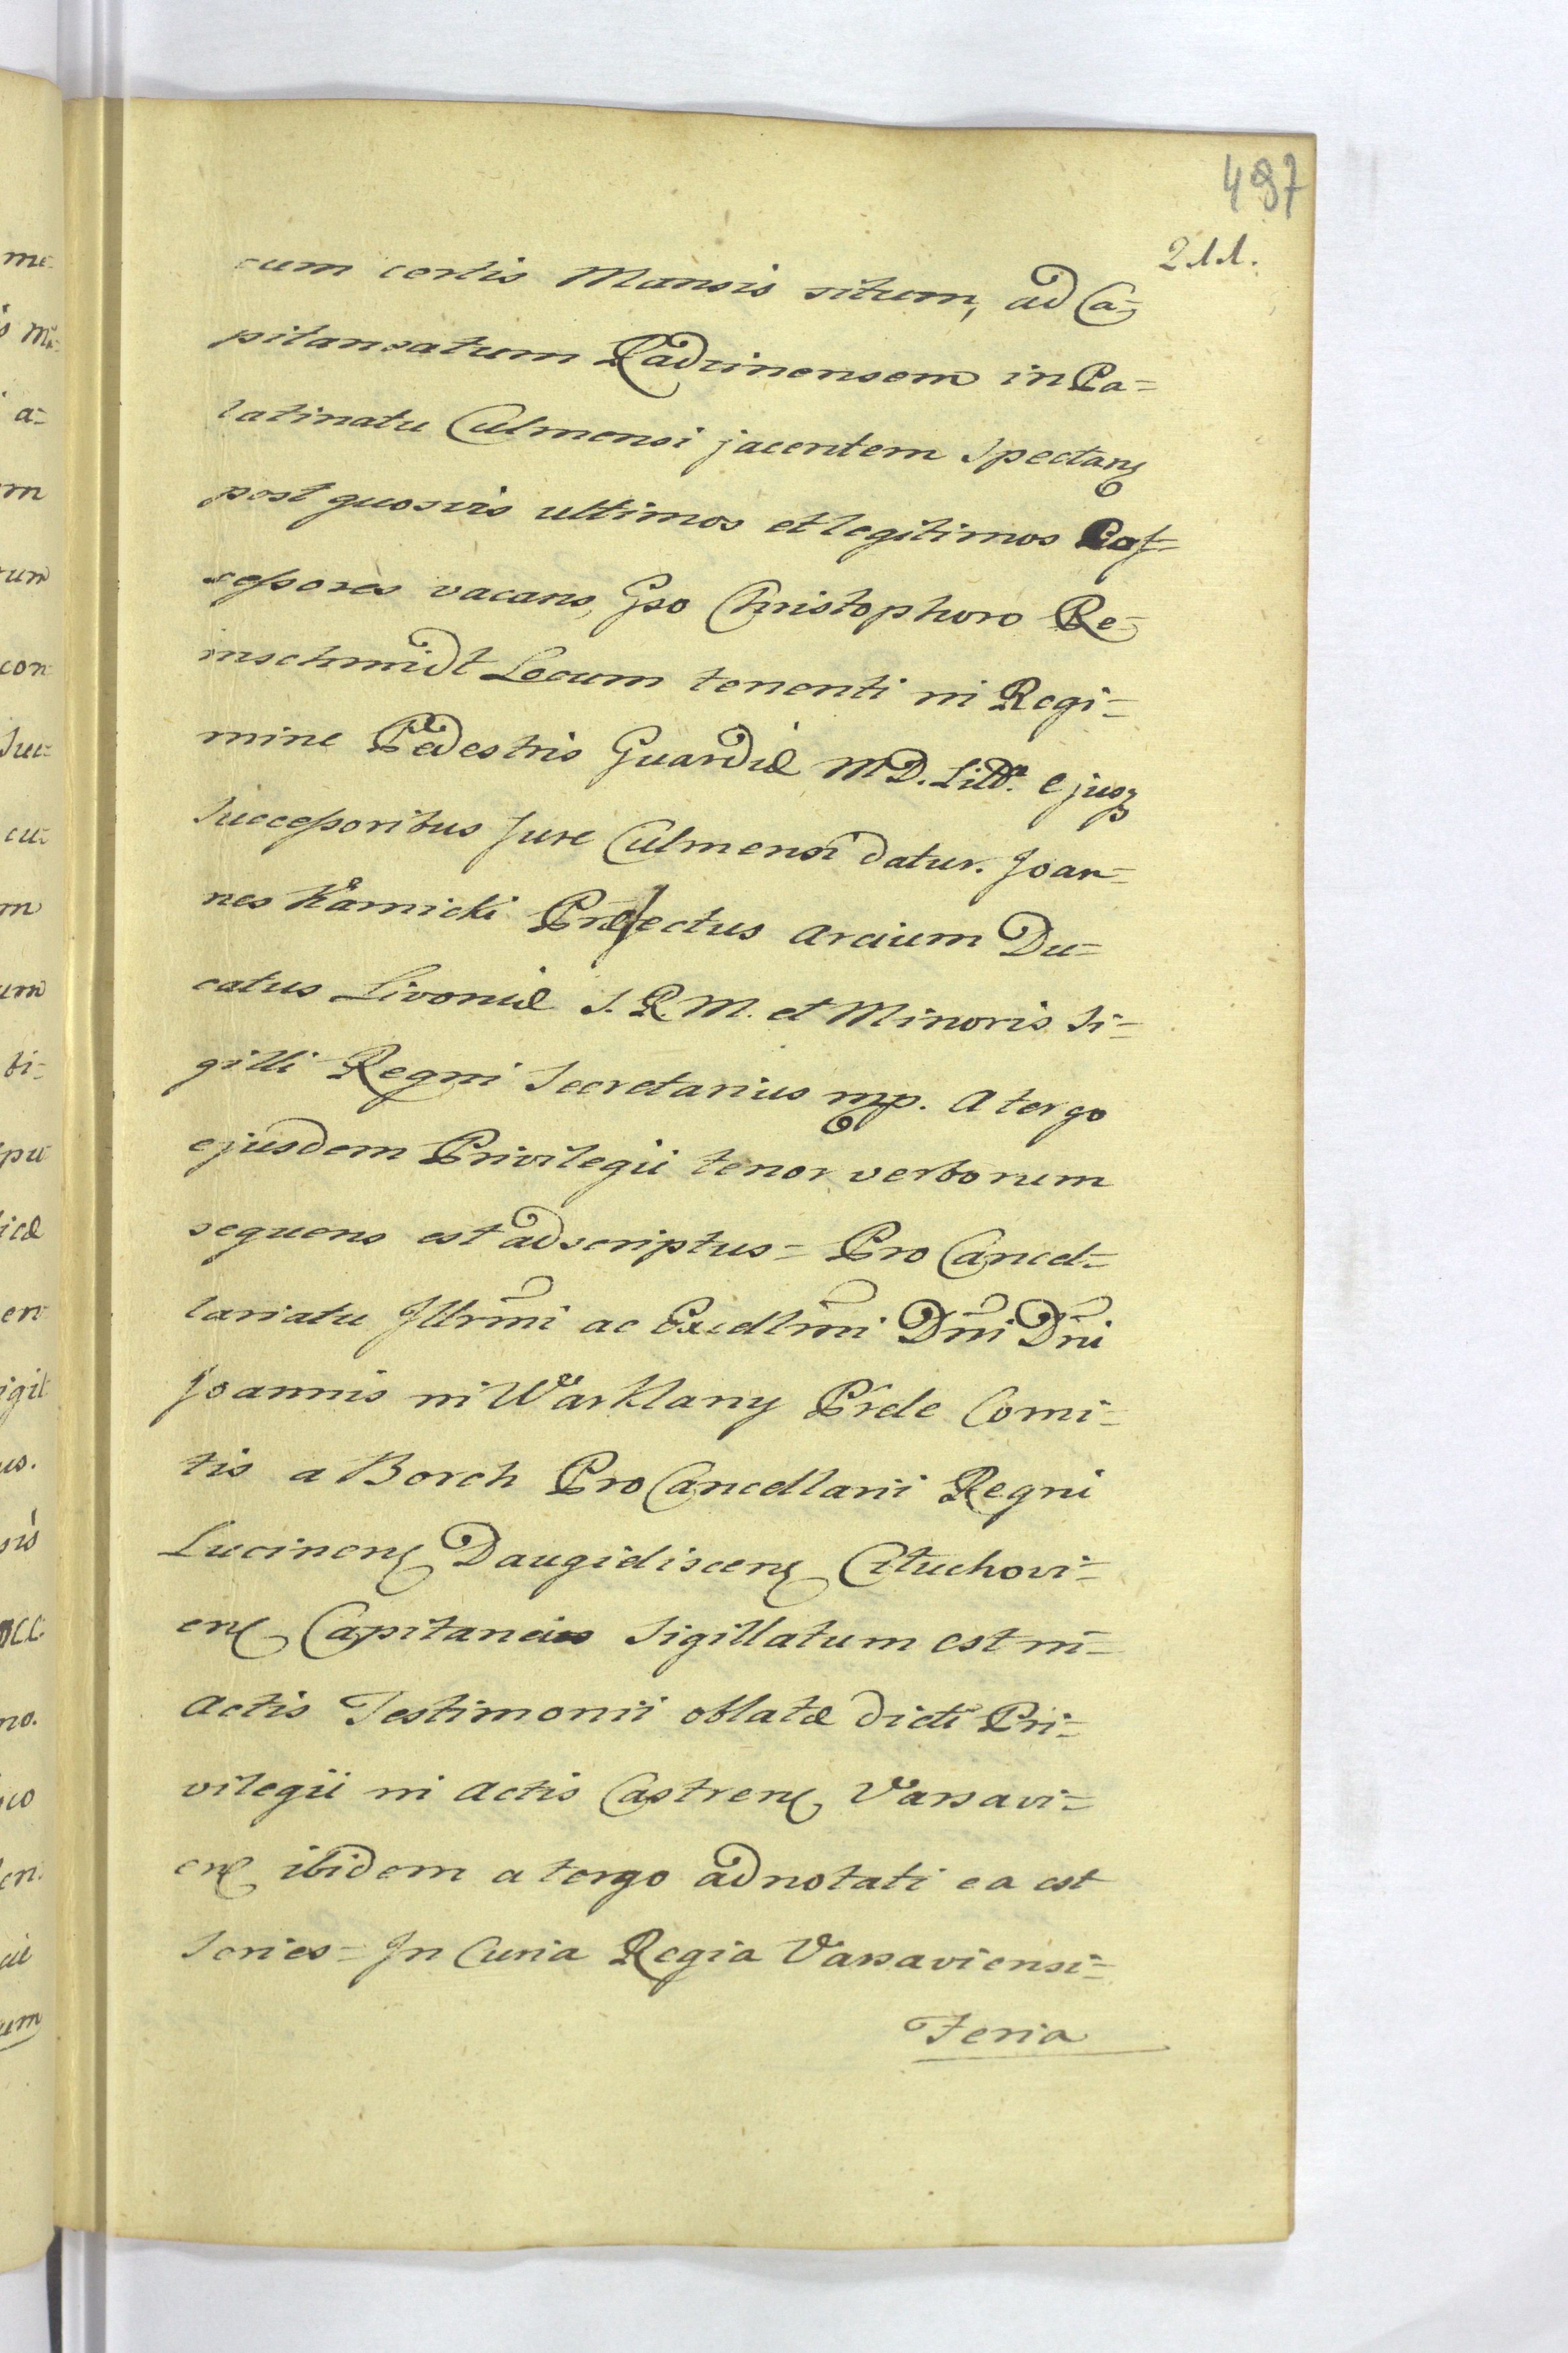 497
211.
cum certis Mansis situm, ad Ca=
pitaneatum Radzinensem in Pa=
latinatu Culmensi jacentem Spectans
post quosvis ultimos et legitimos Pos=
sessores vacans, Gso Christophoro Re=
inschmidt Locum tenenti in Regi=
mine Pedestris Guardiæ M D. Litt. ejusq
Successoribus Jure Culmensi datur. Joan=
nes Karnicki Præfectus arcium Du=
catus Livoniæ S. R. M. et Minoris Si=
gilli Regni Secretarius mp. A tergo
ejusdem Privilegii tenor verborum
sequens est adscriptus= Pro Cancel=
lariatu Jllrmi ac Excellmi Dni Dni
Joannis in Warklany Prele Comi=
tis a Borch Pro Cancellarii Regni
Lucinens Daugieliscens
ens Capitanei Sigillatum est in=
Actis Testimonii oblatæ dicti Pri=
vilegii in Actis Castrens Varsavi=
ens ibidem a tergo adnotati ea est
Series= Jn Curia Regia Varsaviensi=
Feria